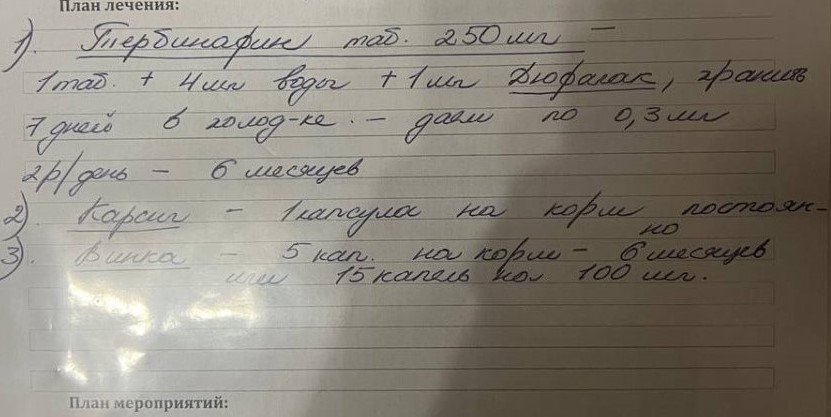 План лечения:
1). Тербинафин таб. 250 мг –
1 таб. + 4 мл воды + 1 мл Дюфалак, хранить
7 дней в холод-ке. – даем по 0,3 мл
2р/день – 6 месяцев
2). Карсил – 1 капсула на корм постоян-
но
3). Винка – 5 кап. на корм – 6 месяцев
или 15 капель на 100 мл.
План мероприятий: